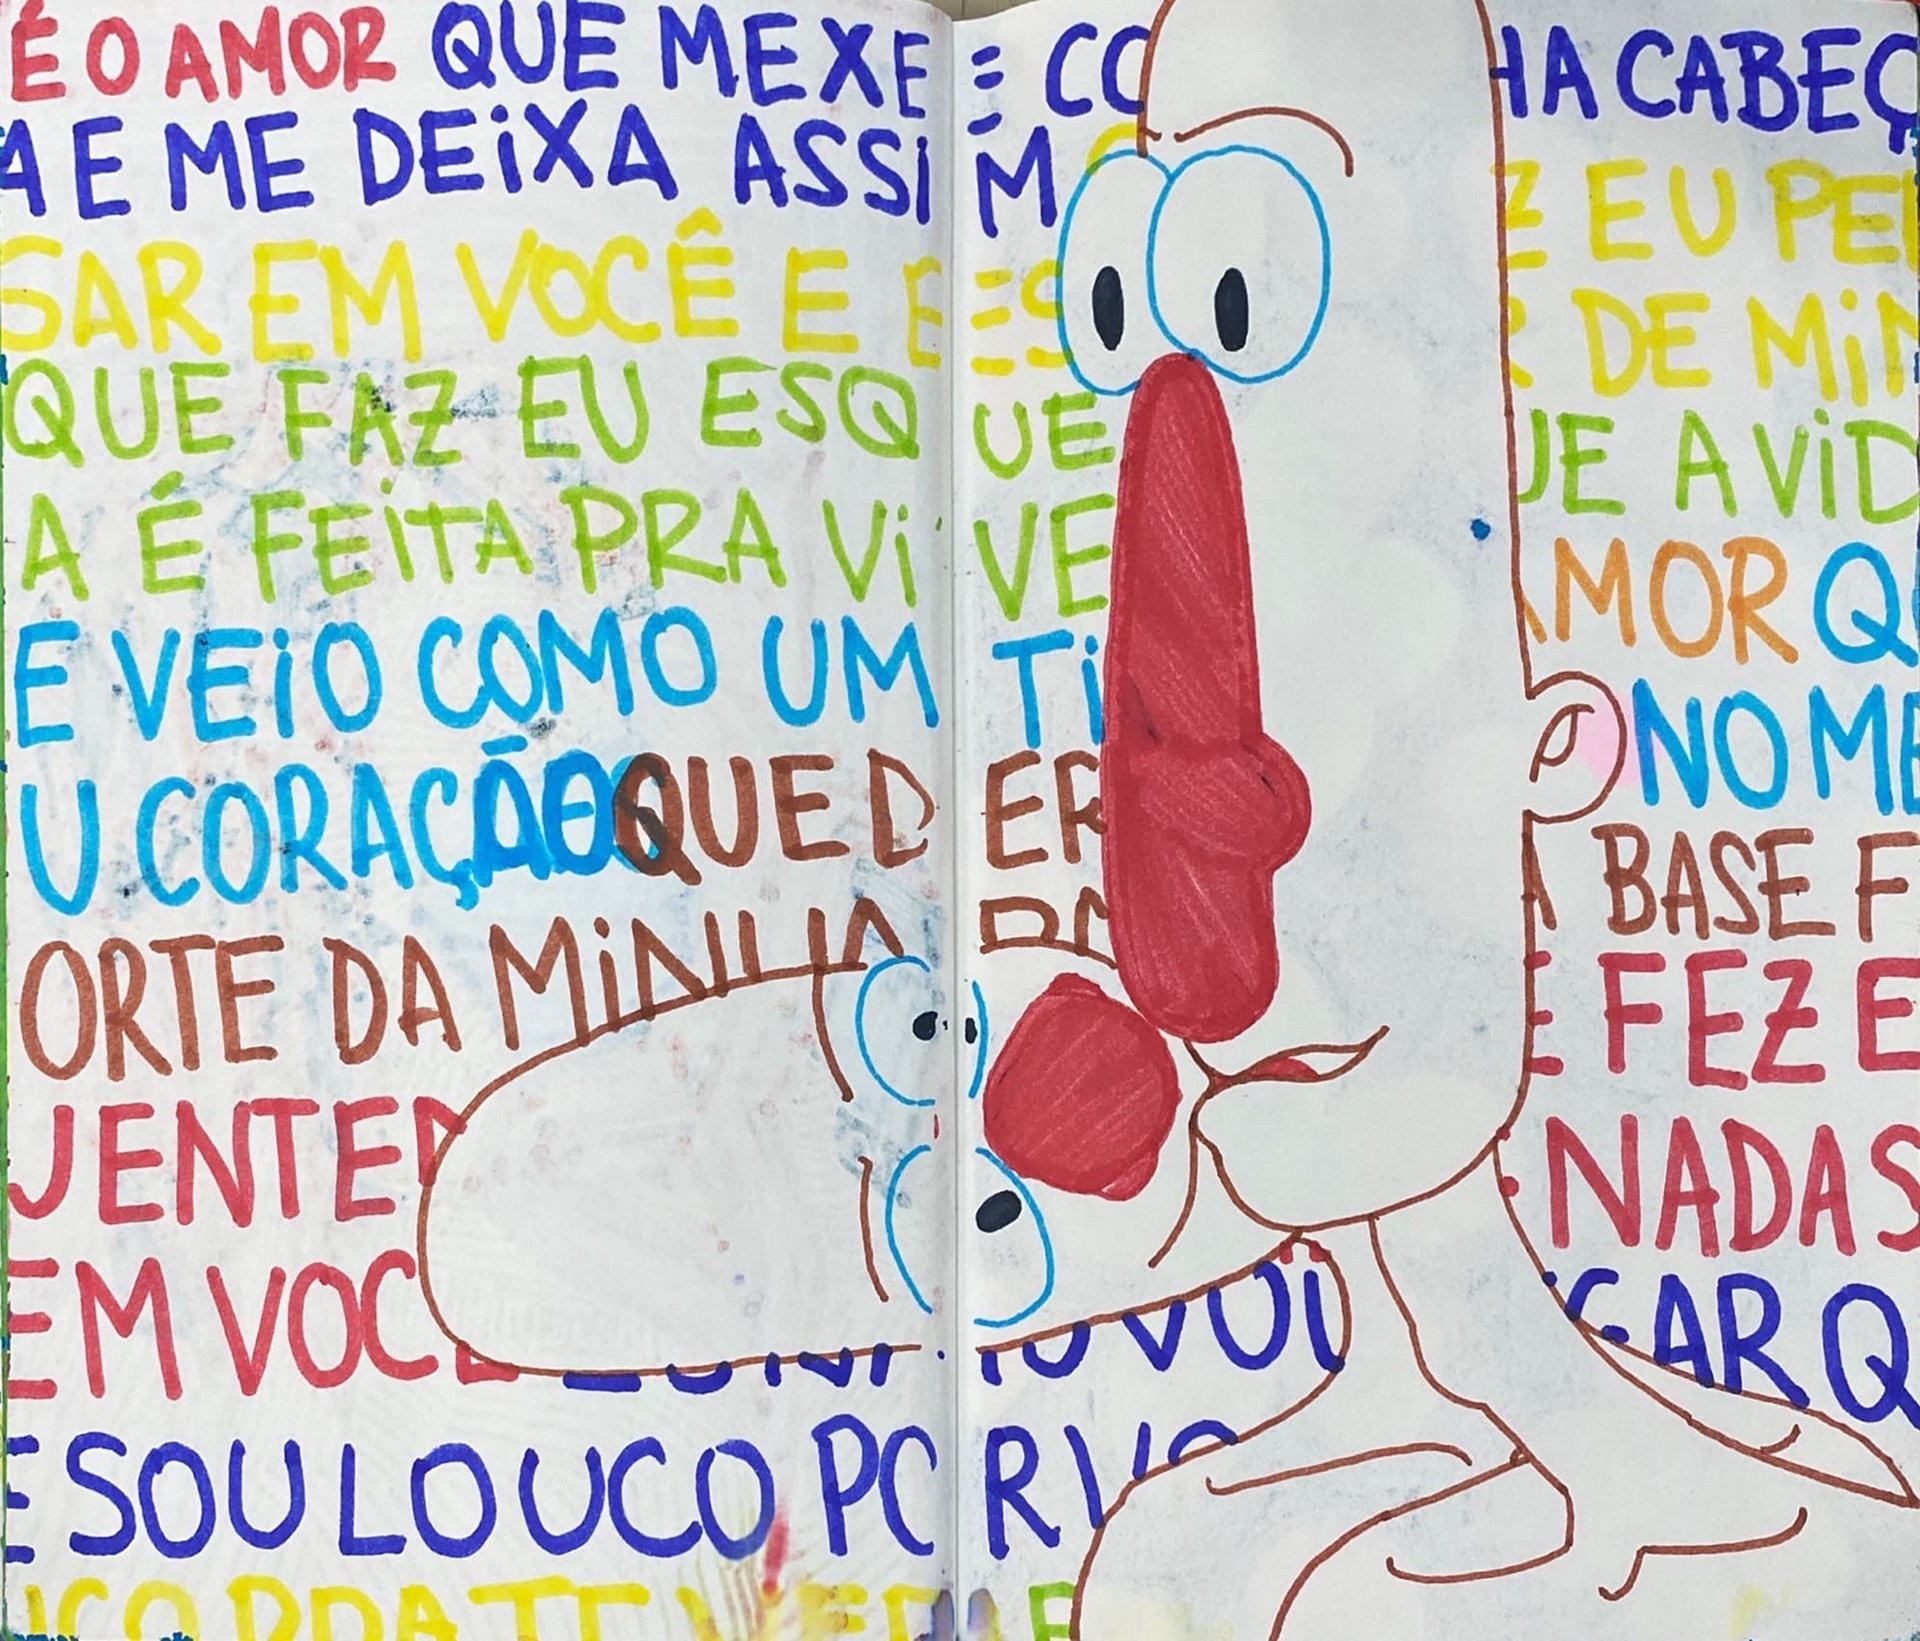 É O AMOR QUE MEXE CO HA CABEÇ
A E ME DEIXA ASSIM Z EU PE
SAR EM VOCÊ E ES DE MIN
QUE FAZ EU ESQUE UE A VID
A É FEITA PRA VIVE AMOR Q
E VEIO COMO UM TI NO ME
U CORAÇÃO QUE DER BASE F
ORTE DA MINHA FEZ E
ENTE NADA S
EM VOCÊ VOU GAR Q
E SOU LOUCO POR VO